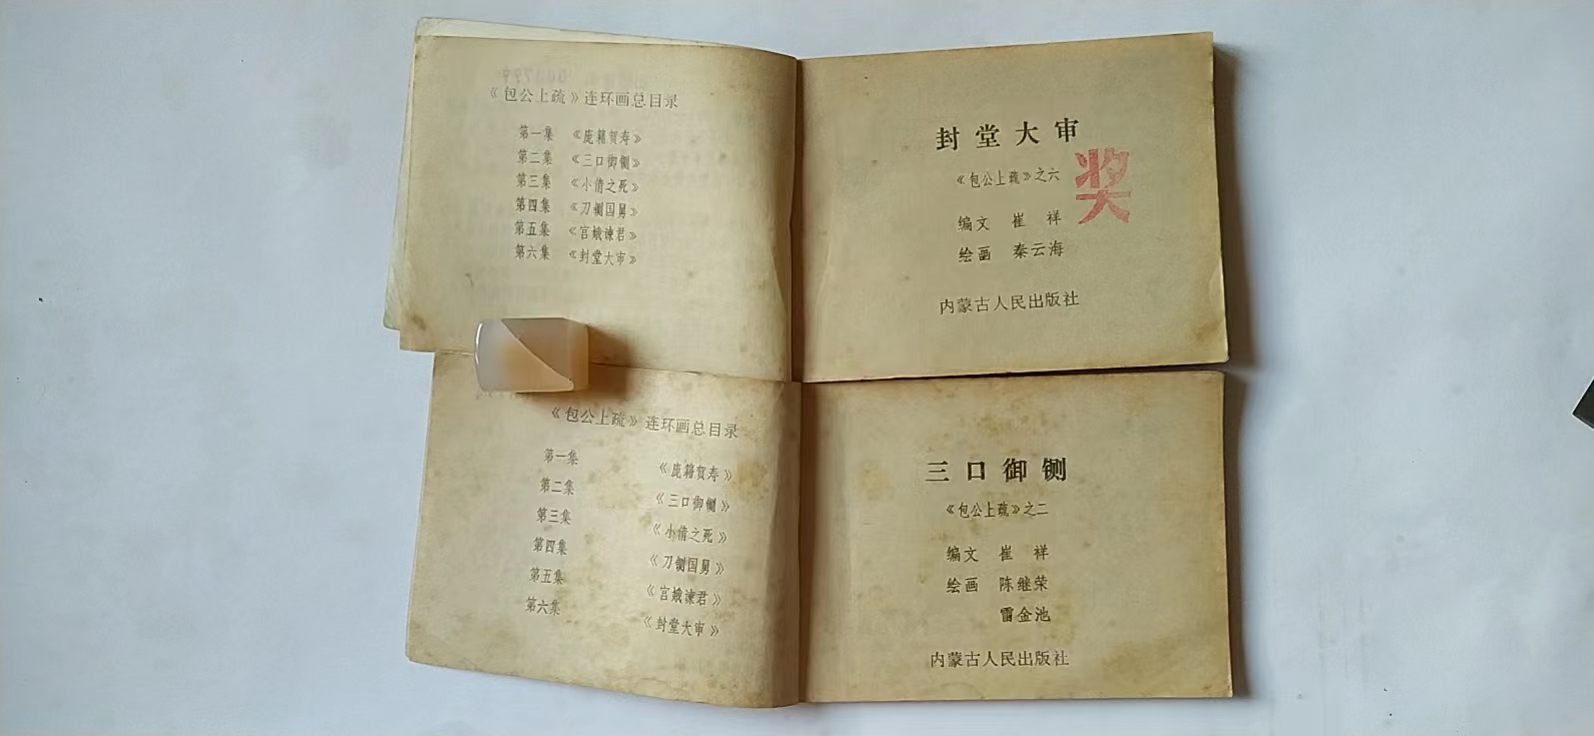 《包公上疏》连环画总目录
第一集 《庞籍贺寿》
第二集 《三口御铡》
第三集 《小倩之死》
第四集 《刀铡国舅》
第五集 《宫娥谏君》
第六集 《封堂大审》
封堂大审
《包公上疏》之六
奖
编文 崔祥
绘画 秦云海
内蒙古人民出版社
《包公上疏》连环画总目录
第一集 《庞籍贺寿》
第二集 《三口御铡》
第三集 《小倩之死》
第四集 《刀铡国舅》
第五集 《宫娥谏君》
第六集 《封堂大审》
三口御铡
《包公上疏》之二
编文 崔祥
绘画 陈继荣
雷金池
内蒙古人民出版社